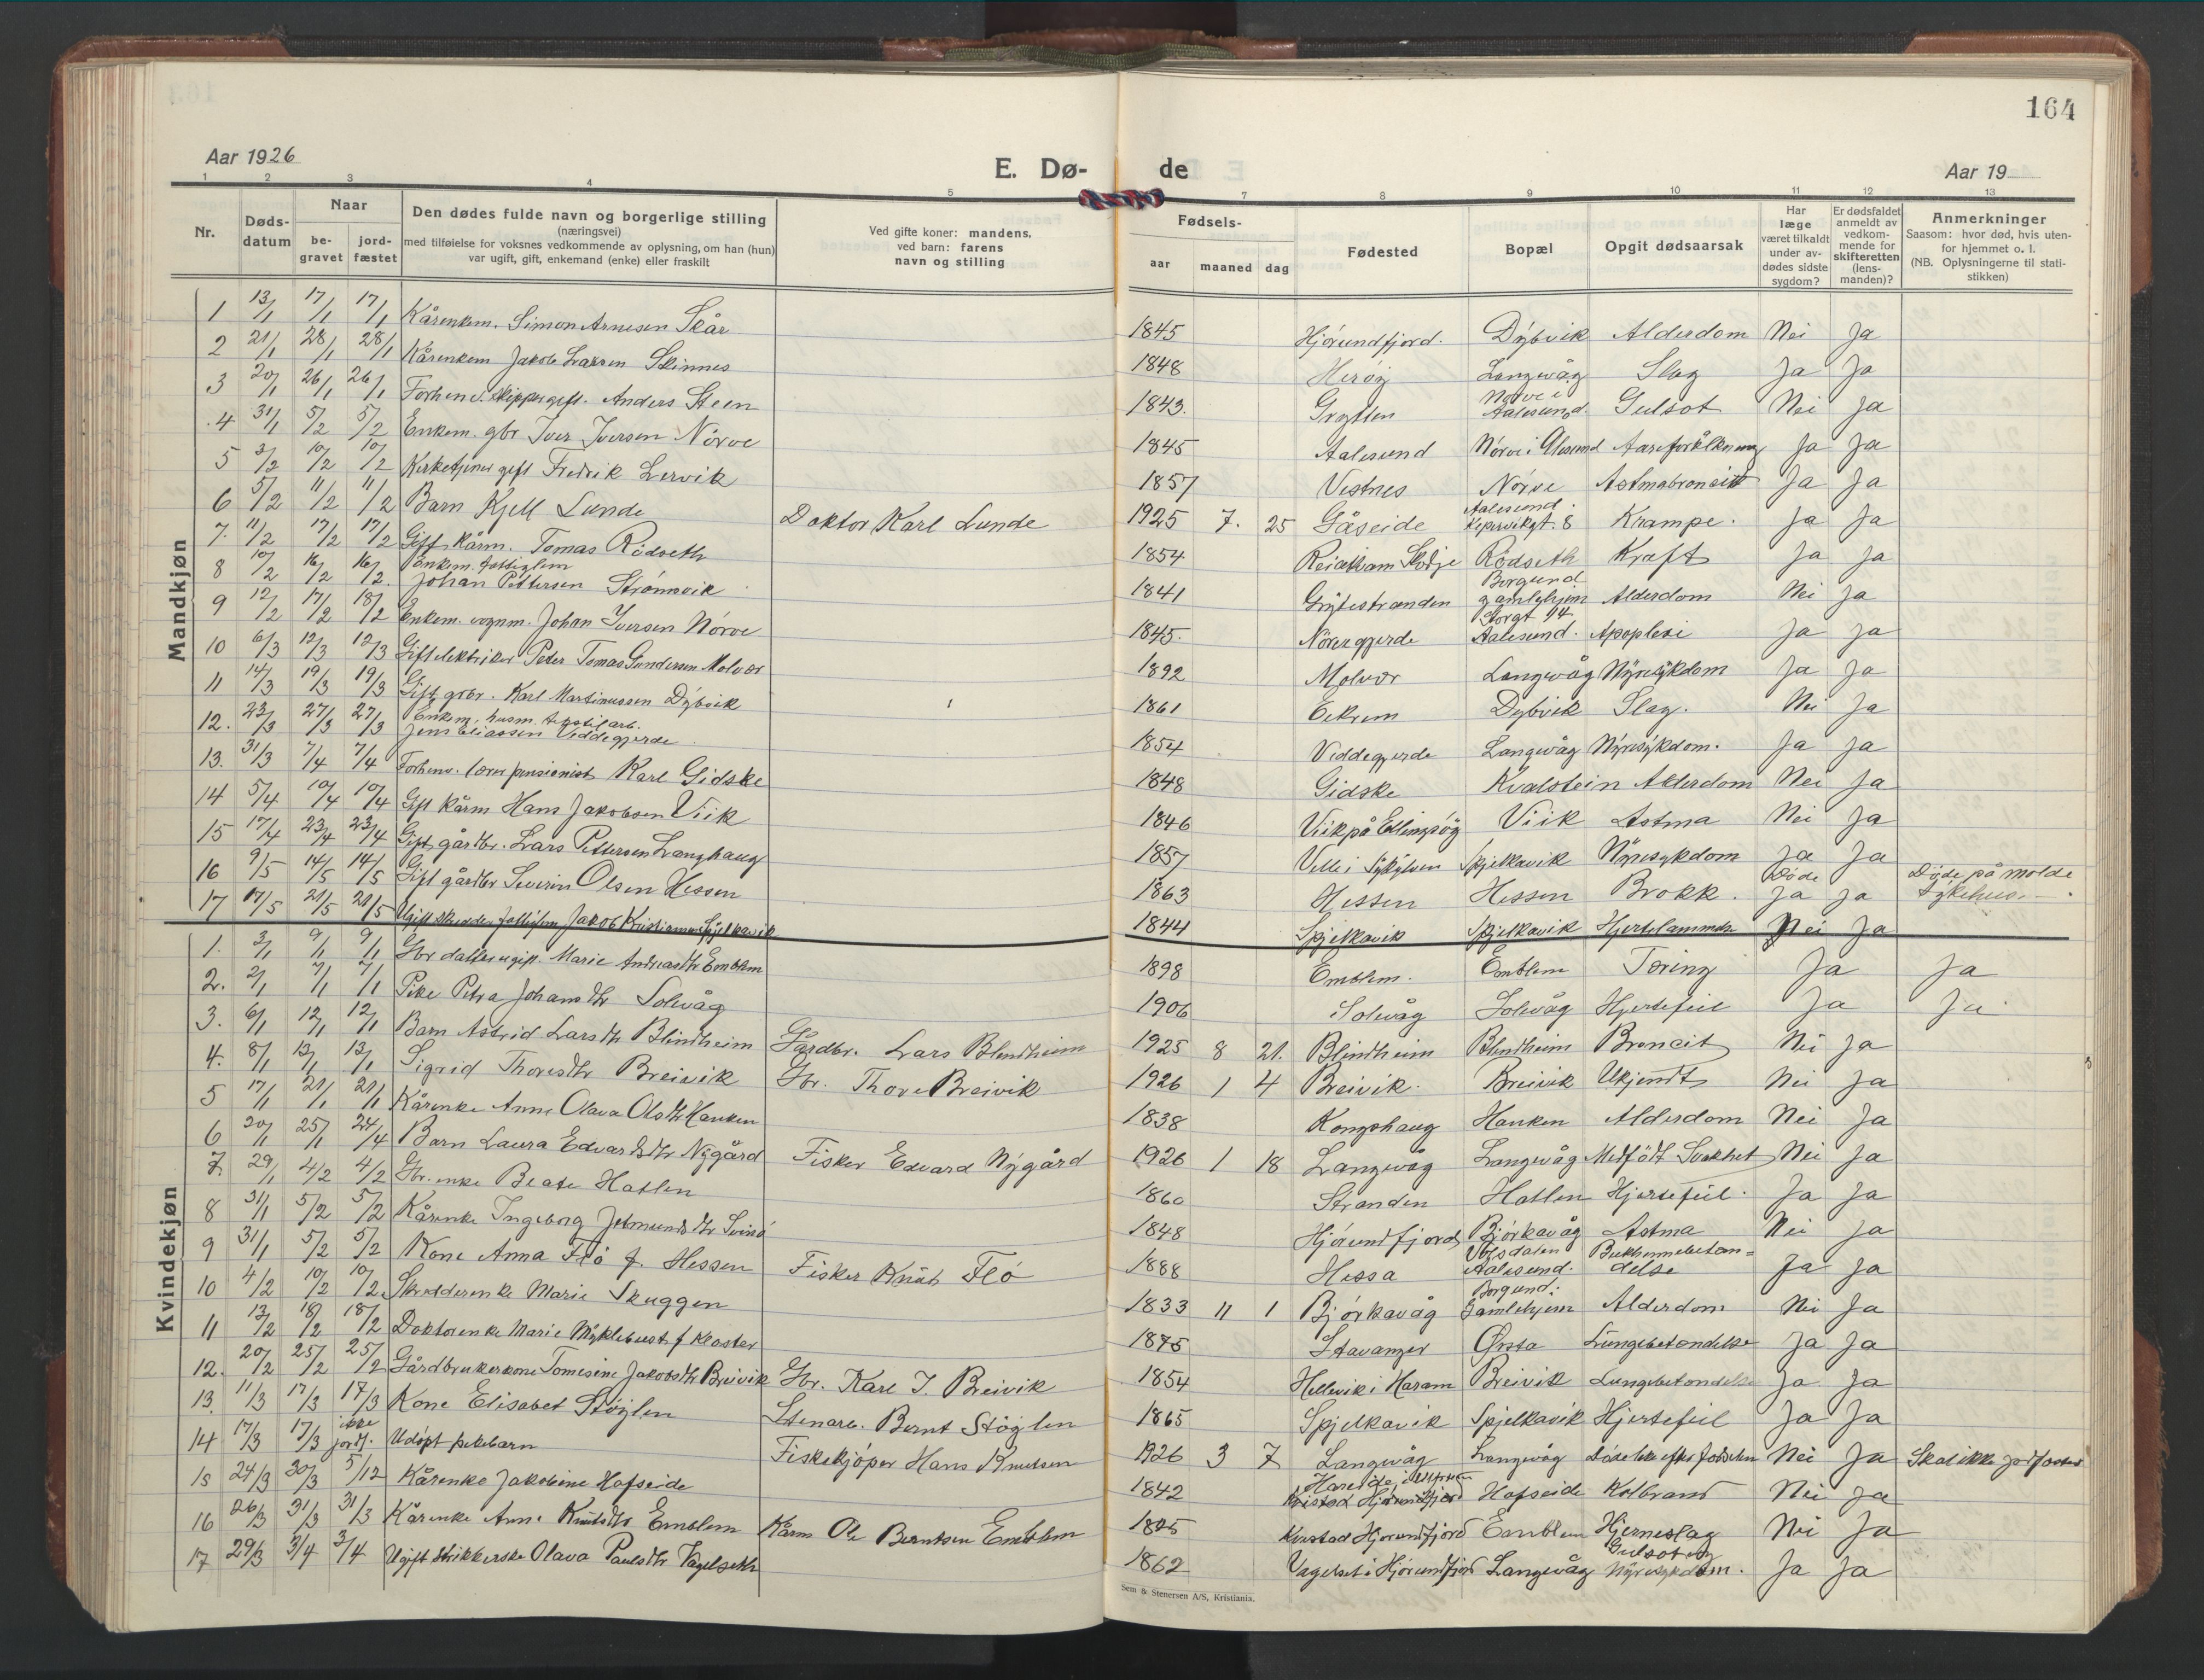 164
Aar 1926
E. Dø-
de
Aar 19
1 2 3 4 5 7 8 9 10 11 12 13
Nr.
Døds-
datum
Naar
be-
gravet
jord-
fæstet
Den dødes fulde navn og borgerlige stilling
(næringsvei)
med tilføielse for voksnes vedkommende av oplysning, om han (hun)
var ugift, gift, enkemand (enke) eller fraskilt
Ved gifte koner: mandens,
ved barn: farens
navn og stilling
Fødsels-
aar
maaned
dag
Fødested
Bopæl
Opgit dødsaarsak
Har
læge
været tilkaldt
under av-
dødes sidste
sygdom?
Er dødsfaldet
anmeldt av
vedkom-
mende for
skifteretten
(lens-
manden)?
Anmerkninger
Saasom: hvor død, hvis uten-
for hjemmet o. l.
(NB. Oplysningerne til stati-
stikken)
Mandkjøn
1 13/1 17/1 17/1 Kårenkem. Simon Arnesen Skår 1845 Hjörundfjord. Dybvik Alderdom Nei Ja
2 21/1 28/1 28/1 Kårenkem Jakob Larsen Skinnes 1848 Heröy Langevåg Slag Ja Ja
3 20/1 26/1 26/1 Forhenv. skipper gift. Anders Steen 1843. Grytten Nörve i Aalesund. Gulsot Nei Ja
4 31/1 5/2 5/2 Enkem. gbr Iver Iversen Nörve 1845 Aalesund Nörve i Ålesund Aareforkalkning Ja Ja
5 3/2 10/2 10/2 Kirketjener gift Fredrik Lervik 1857 Vestnes Nörve Astmabroncit Ja Ja
6 5/2 11/2 11/2 Barn Kjell Lunde Doktor Karl Lunde 1925 7. 25 Gåseide Aalesund. 8 Krampe. Ja Ja
7. 11/2 17/2 17/2 Gift kårm. Tomas Rödseth 1854 Skodje Rödseth Kræft Ja Ja
8 10/2 16/2 16/2. Enkem. fattiglem Johan Pettersen Strömsvik 1841 Grytestranden Borgund gamlehjem Alderdom Nei Ja
9 12/2 17/2 18/2 Enkem. vognm. Johan Iversen Nörve 1845. Nörvegjerde Storgt 14 Aalesund. Apoplexi Ja Ja
10 6/3 12/3 12/3 Gift elektriker Peter Tomas Gundersen Molvær 1892 Molvær Langevåg Nyresykdom Ja Ja
11 14/3 19/3 19/3 Gift grbr. Karl Martinussen Dybvik 1861 Eekrem Dybvik Slag. Nei Ja
12. 23/3 27/3 27/3 Enkem. husm. tekstilarb. Jens Eliassen Veddegjerde. 1854 Veddegjerde Langevåg Nyresykdom. Ja Ja
13. 31/3 7/4 7/4 Forhenv. lærer pensionist Karl Gidske 1848 Gidske Kvalstein Alderdom Nei Ja
14 5/4 10/4 10/4 Gift kårm Hans Jakobsen Viik 1846 Viik på Ellingsöy Viik Astma Nei Ja
15 17/4 23/4 23/4 Gift gårdbr. Lars Pettersen Langhaug 1857 Velle i Sykylven Spjelkavik Nyresykdom Ja Ja
16 9/5 14/5 14/5 Gift gårdbr Severin Olsen Hessen 1863 Hessen Hessen Brokk. Ja Ja Döde på Molde Sykehus.
17 17/5 21/5 21/5 Ugift skredder fattiglem Jakob Kristiansen Spjelkavik 1844 Spjelkavik Spjelkavik Hjertelammelse Nei Ja
Kvindekjøn
1. 3/1 9/1 9/1 Gbr datter ugift. Marie Andreasdtr Emblem 1898 Emblem. Emblem Tæring Ja Ja
2. 2/1 7/1 7/1 Pike Petra Johansdtr Solevåg 1906 Solevåg Solevåg Hjertefeil Ja Ja.
3. 6/1 12/1 12/1 Barn Astrid Larsdtr Blindheim Gårdbr. Lars Blindheim 1925 8 21. Blindheim Blindheim Broncit Nei Ja
4. 8/1 13/1 13/1 Sigrid Thoresdtr Breivik Gbr. Thore Breivik 1926 1 4 Breivik. Breivik Ukjendt Nei Ja
5 17/1 21/1 21/1 Kårenke Anne Olava Olsdtr Hanken 1838 Kongshaug Hanken Alderdom Nei Ja
6 20/1 25/1 24/4 Barn Laura Edvardsdtr Nygård Fisker Edvard Nygård 1926 1 18 Langevåg Langevåg Medfödt Svakhet Nei Ja
7. 29/1 4/2 4/2 Gbr. enke Beate Hatlen 1860 Stranden Hatlen Hjertefeil. Ja Ja
8 31/1 5/2 5/2 Kårenke Ingeborg Jetmundsdtr Svinö 1848 Hjörundfjord Björkavåg Astma Nei Ja
9 31/1 5/2 5/2 Kone Anna Flö f. Hessen Fisker Knut Flö 1888 Hessa Volsdalen Aalesund. Bukhinnebetændelse Ja Ja
10 4/2 10/2 10/2 Skredderenke Marie Skuggen 1833 11 1 Björkavåg Borgund. Gamlehjem Alderdom Nei Ja
11 13/2 18/2 18/2 Doktorenke Marie Myklebust f Kloster 1875 Stavanger Örsta Lungebetændelse Ja Ja
12. 20/2 25/2 25/2 Gårdbrukerkone Tomesine Jakobsdtr Breivik Gbr. Karl J. Breivik 1854 Hellevik i Haram Breivik Lungebetændelse Ja Ja
13. 11/3 17/3 17/3 Kone Elisabet Stöylen Stenarb. Bernt Stöylen 1865 Spjelkavik Spjelkavik Hjertefeil Ja Ja
14 17/3 17/3 ikke jordf. Udöpt pikebarn Fiskekjöper Hans Knutsen 1926 3 7 Langevåg Langevåg Döde like efter födselen Nei Ja Skal ikke jordfæstes
15 24/3 30/3 5/12 Kårenke Jakobine Hofseide 1842 Hareide Hofseide Kolbrand Nei Ja
16 26/3 31/3 31/3 Kårenke Anne Knutsdtr Emblem Kårm Ole Berntsen Emblem 1845 Hjörundfjord Emblem Hjerneslag Nei Ja
17 29/3 3/4 3/4 Ugift strikkerske Olava Paulsdtr Vagelseth 1862 Vagelset i Hjörundfjord Langevåg Gulsot og Nyresykdom. Ja Ja
Sem & Stenersen A/S, Kristiania.